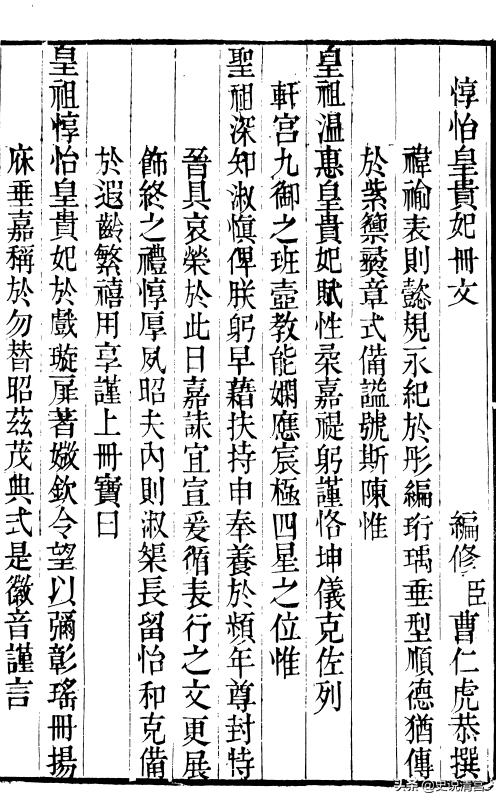 惇怡皇貴妃冊文　編修臣曹仁虎恭撰
褘褕表則懿規永紀於彤編珩瑀垂型順德猶傳
於紫籞爰章式備謚號斯陳惟
皇祖温惠皇貴妃賦性柔嘉禔躬謹恪坤儀克佐列
軒宮九御之班壼教能嫻應宸極四星之位惟
聖祖深知淑慎俾朕躬早藉扶持申奉養於頻年尊封特
晉具哀榮於此日嘉誄宜宣爰循表行之文更展
飾終之禮惇厚夙昭夫內則淑榘長留怡和克備
於遐齡繁禧用享謹上冊寶曰
皇祖惇怡皇貴妃於戲璇扉著媺欽令望以彌彰瑤冊揚
庥垂嘉稱於勿替昭茲茂典式是徽音謹言
头条@史说清宫